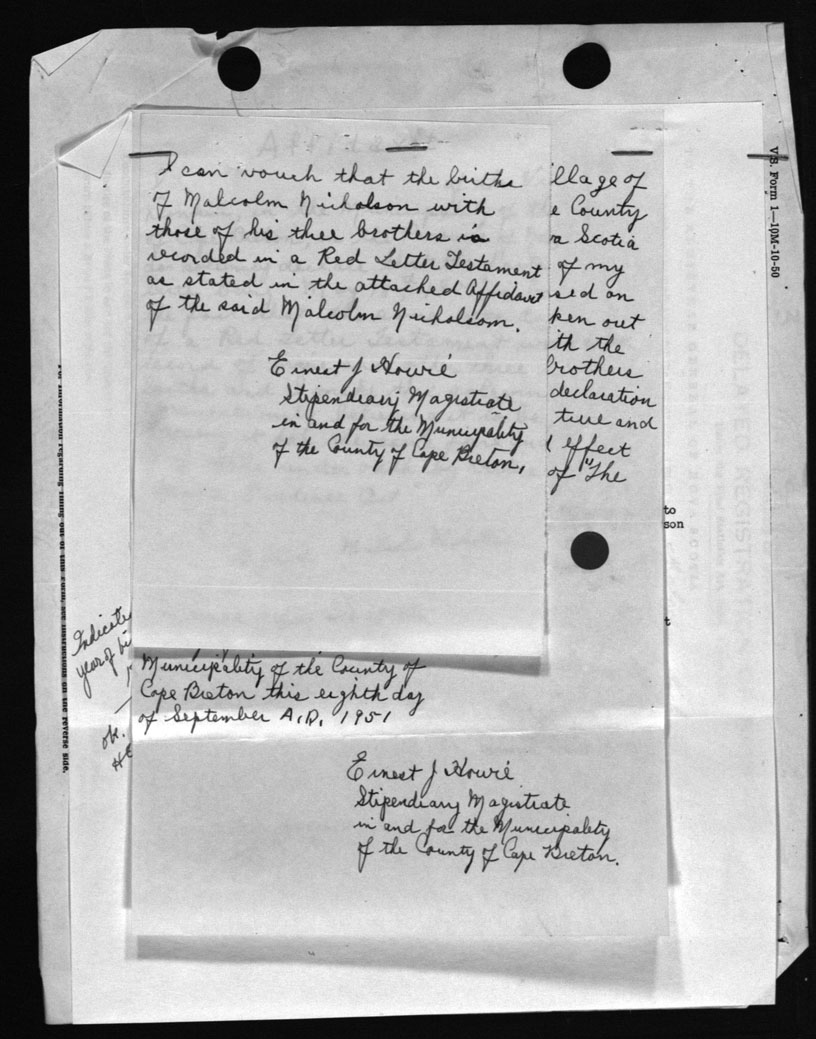 I can vouch that the births
of Malcolm Nicholson with
those of his thee brothers is
recorded in a Red Letter Testament
as stated in the attached Affidavit
of the said Malcolm Nicholson.
Ernest J Howie
Stipendiary Magistrate
in and for the Municipality
of the County of Cape Breton,
illage of
e County
a Scotia
of my
sed on
ken out
ith the
brothers
declaration
true and
d effect
of "The
to
son
t
V.S. Form 1—10M-10-50
Indicate
year of bi
ok.
Municipality of the County of
Cape Breton this eighth day
of September A.D. 1951
Ernest J Howie
Stipendiary Magistrate
in and for the Municipality
of the County of Cape Breton.
For information regarding filling out of this form, see instructions on the reverse side.